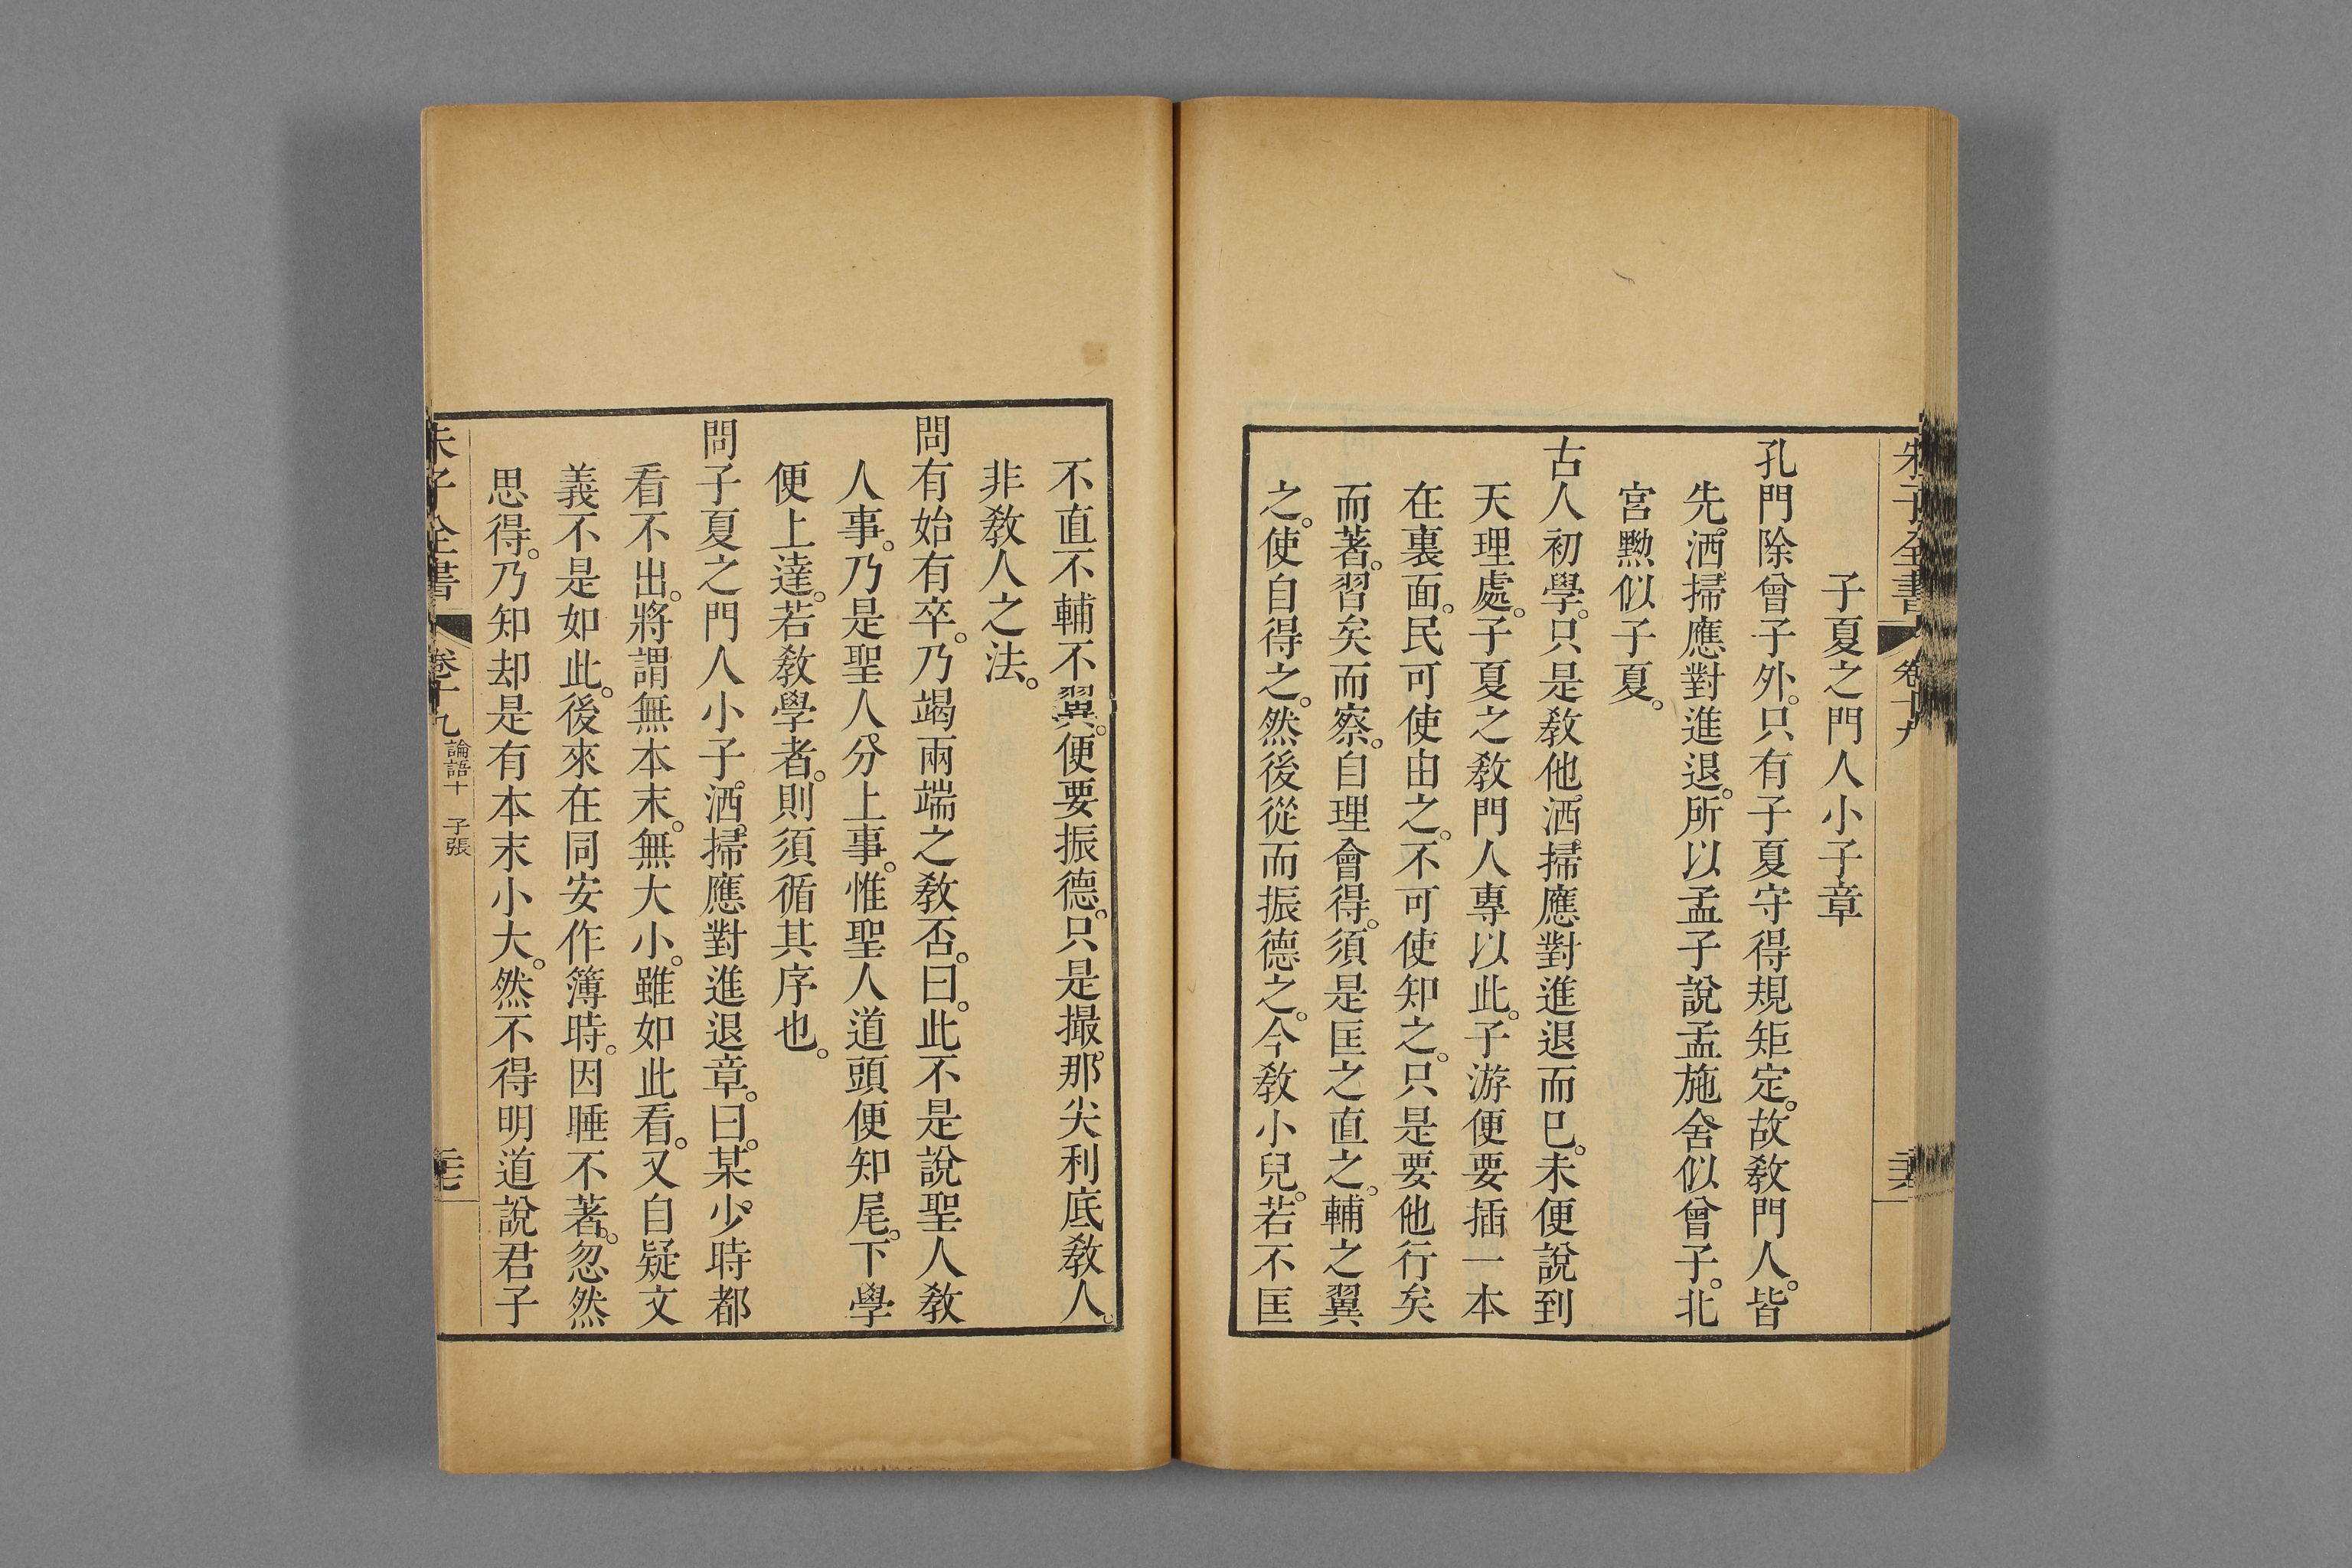 朱子全書 卷十九
子夏之門人小子章
孔門除曾子外。只有子夏守得規矩定。故敎門人。皆
先洒掃應對進退。所以孟子說孟施舍似曾子。北
宮黝似子夏。
古人初學。只是敎他洒掃應對進退而已。未便說到
天理處。子夏之敎門人專以此。子游便要插一本
在裏面。民可使由之。不可使知之。只是要他行矣
而著。習矣而察。自理會得。須是匡之直之。輔之翼
之。使自得之。然後從而振德之。今敎小兒。若不匡
不直不輔不翼。便要振德。只是撮那尖利底敎人。
非敎人之法。
問有始有卒。乃竭兩端之敎否。曰。此不是說聖人敎
人事。乃是聖人分上事。惟聖人道頭便知尾。下學
便上達。若敎學者。則須循其序也。
問子夏之門人小子。洒掃應對進退章。曰。某少時都
看不出。將謂無本末。無大小。雖如此看。又自疑文
義不是如此。後來在同安作簿時。因睡不著。忽然
思得。乃知却是有本末小大。然不得明道說君子
朱子全書 卷十九 論語十 子張